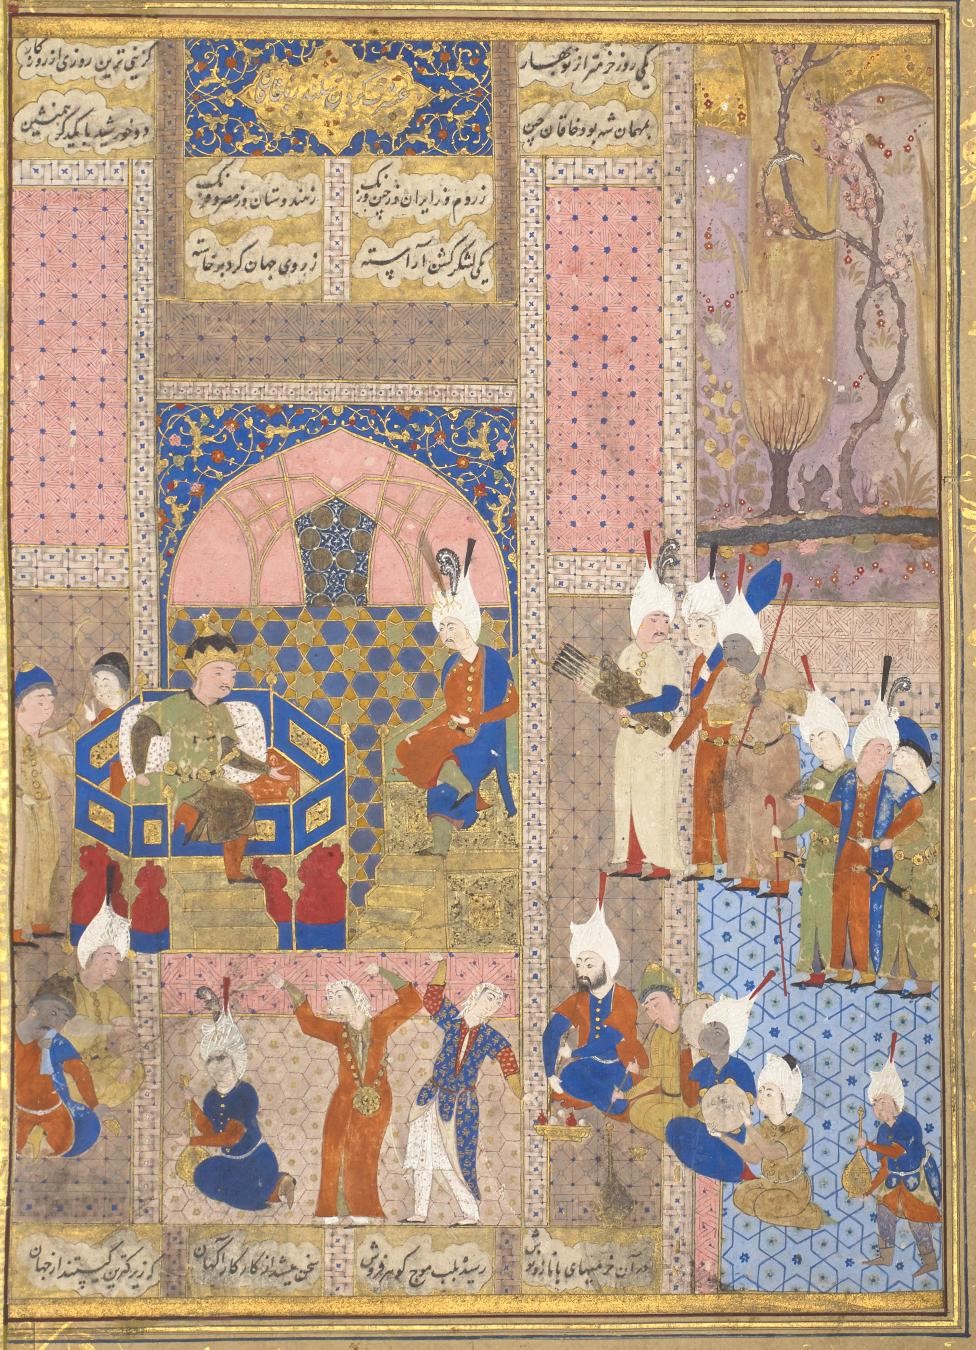 یکی روز خرمتر از نوبهار
گزین ترین روزی از روزگار
بمهمان شه بود خاقان چین
دو خورشید با یکدگر همنشین
ز روم و ز ایران و ز چین و زنک
ز هندوستان و ز مصر و فرنک
یکی لشکر گشن آراسته
ز روی جهان گرد برخاسته
در آن خرمیهای با ناز و نوش
رسیده بلب موج گوهر فروش
سخن میشد از کار کارآگهان
که زیرکترین کیستند از جهان